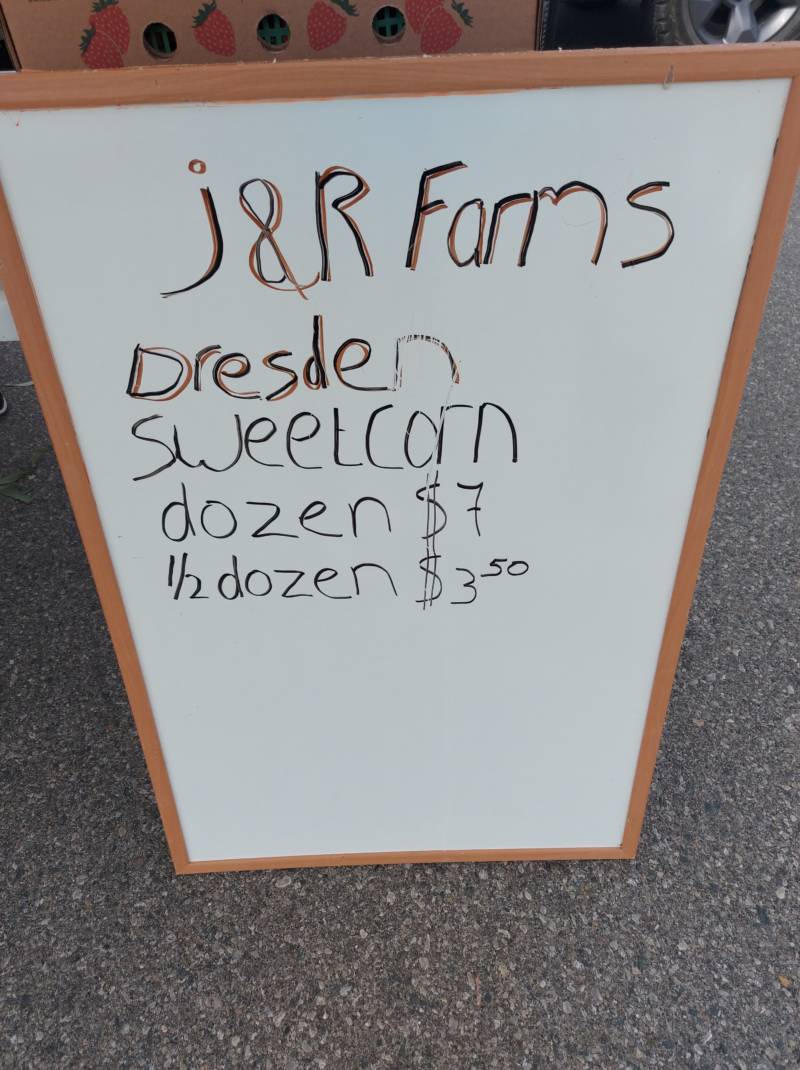 J&R Farms
Dresden
sweetcorn
dozen $7
1/2 dozen $3 50